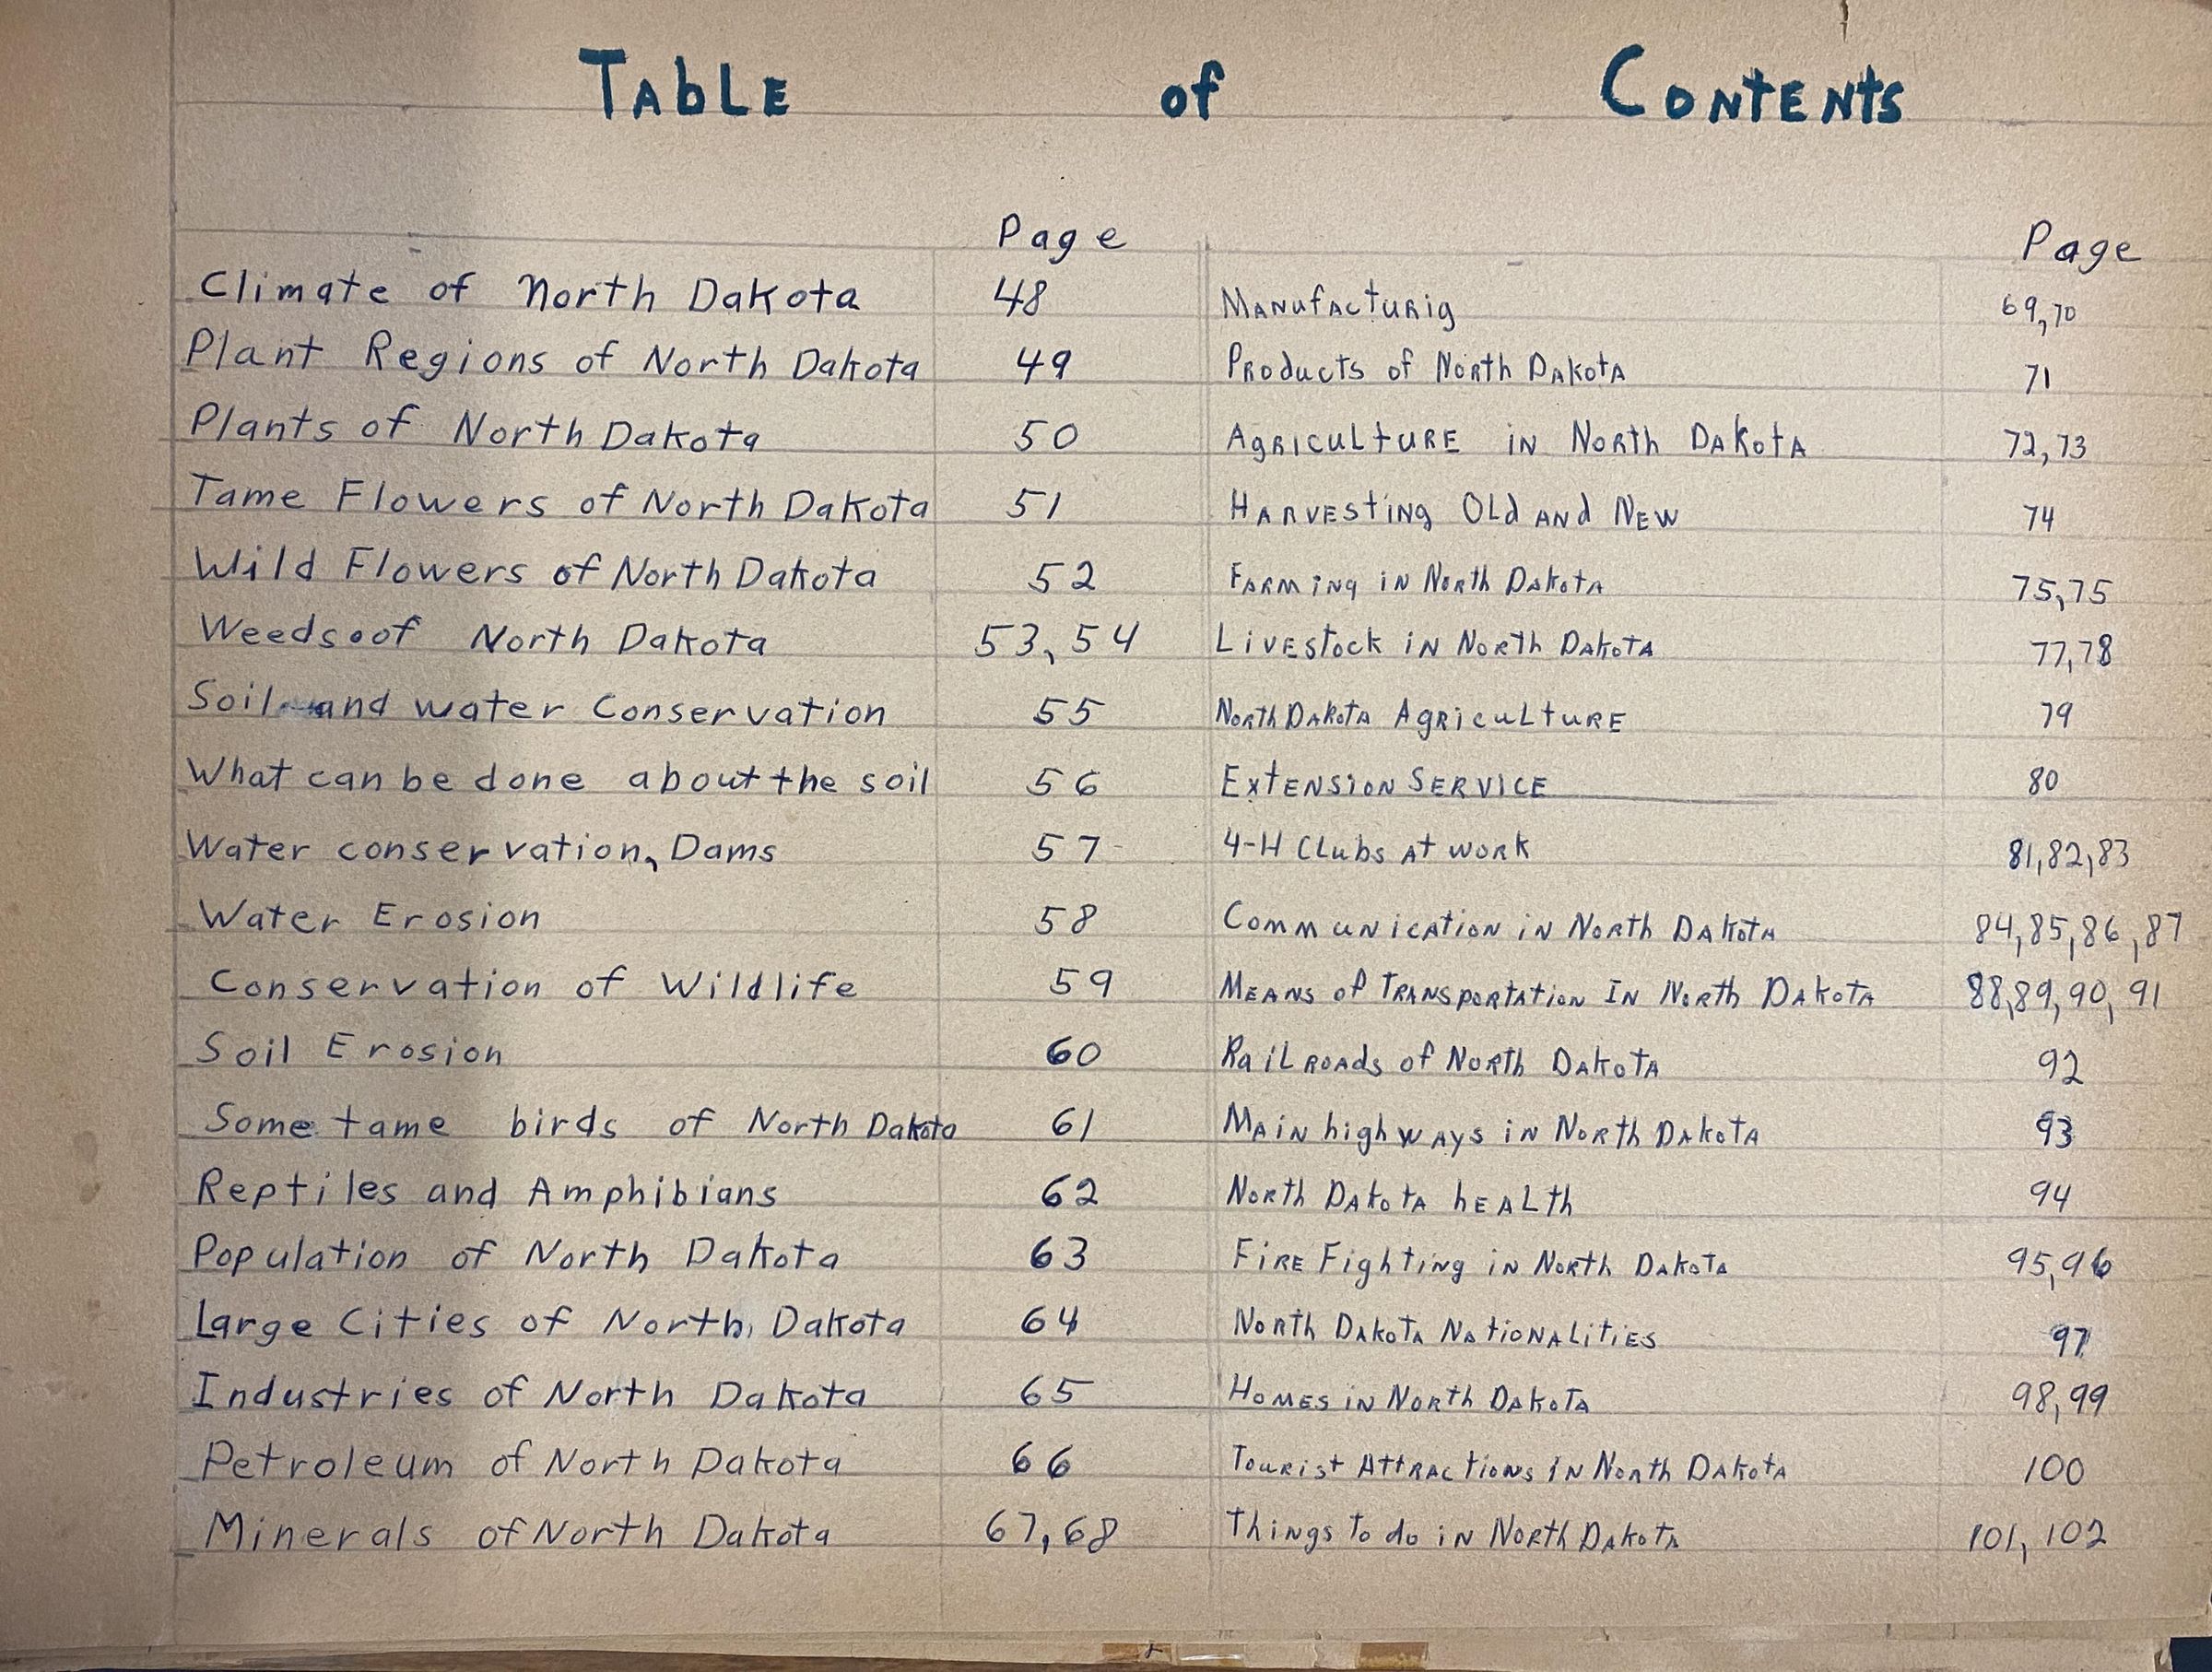 Table of Contents
Page
Climate of North Dakota 48
Plant Regions of North Dakota 49
Plants of North Dakota 50
Tame Flowers of North Dakota 51
Wild Flowers of North Dakota 52
Weeds of North Dakota 53, 54
Soil and water Conservation 55
What can be done about the soil 56
Water conservation, Dams 57
Water Erosion 58
Conservation of Wildlife 59
Soil Erosion 60
Some tame birds of North Dakota 61
Reptiles and Amphibians 62
Population of North Dakota 63
Large Cities of North Dakota 64
Industries of North Dakota 65
Petroleum of North Dakota 66
Minerals of North Dakota 67, 68
Page
Manufacturig 69,70
Products of North Dakota 71
Agriculture in North Dakota 72,73
Harvesting Old and New 74
Farming in North Dakota 75,75
Livestock in North Dakota 77,78
North Dakota Agriculture 79
Extension Service 80
4-H Clubs at work 81,82,83
Communication in North Dakota 84,85,86,87
Means of Transportation In North Dakota 88,89,90,91
Railroads of North Dakota 92
Main highways in North Dakota 93
North Dakota health 94
Fire Fighting in North Dakota 95,96
North Dakota Nationalities 97
Homes in North Dakota 98,99
Tourist Attractions in North Dakota 100
Things to do in North Dakota 101, 102